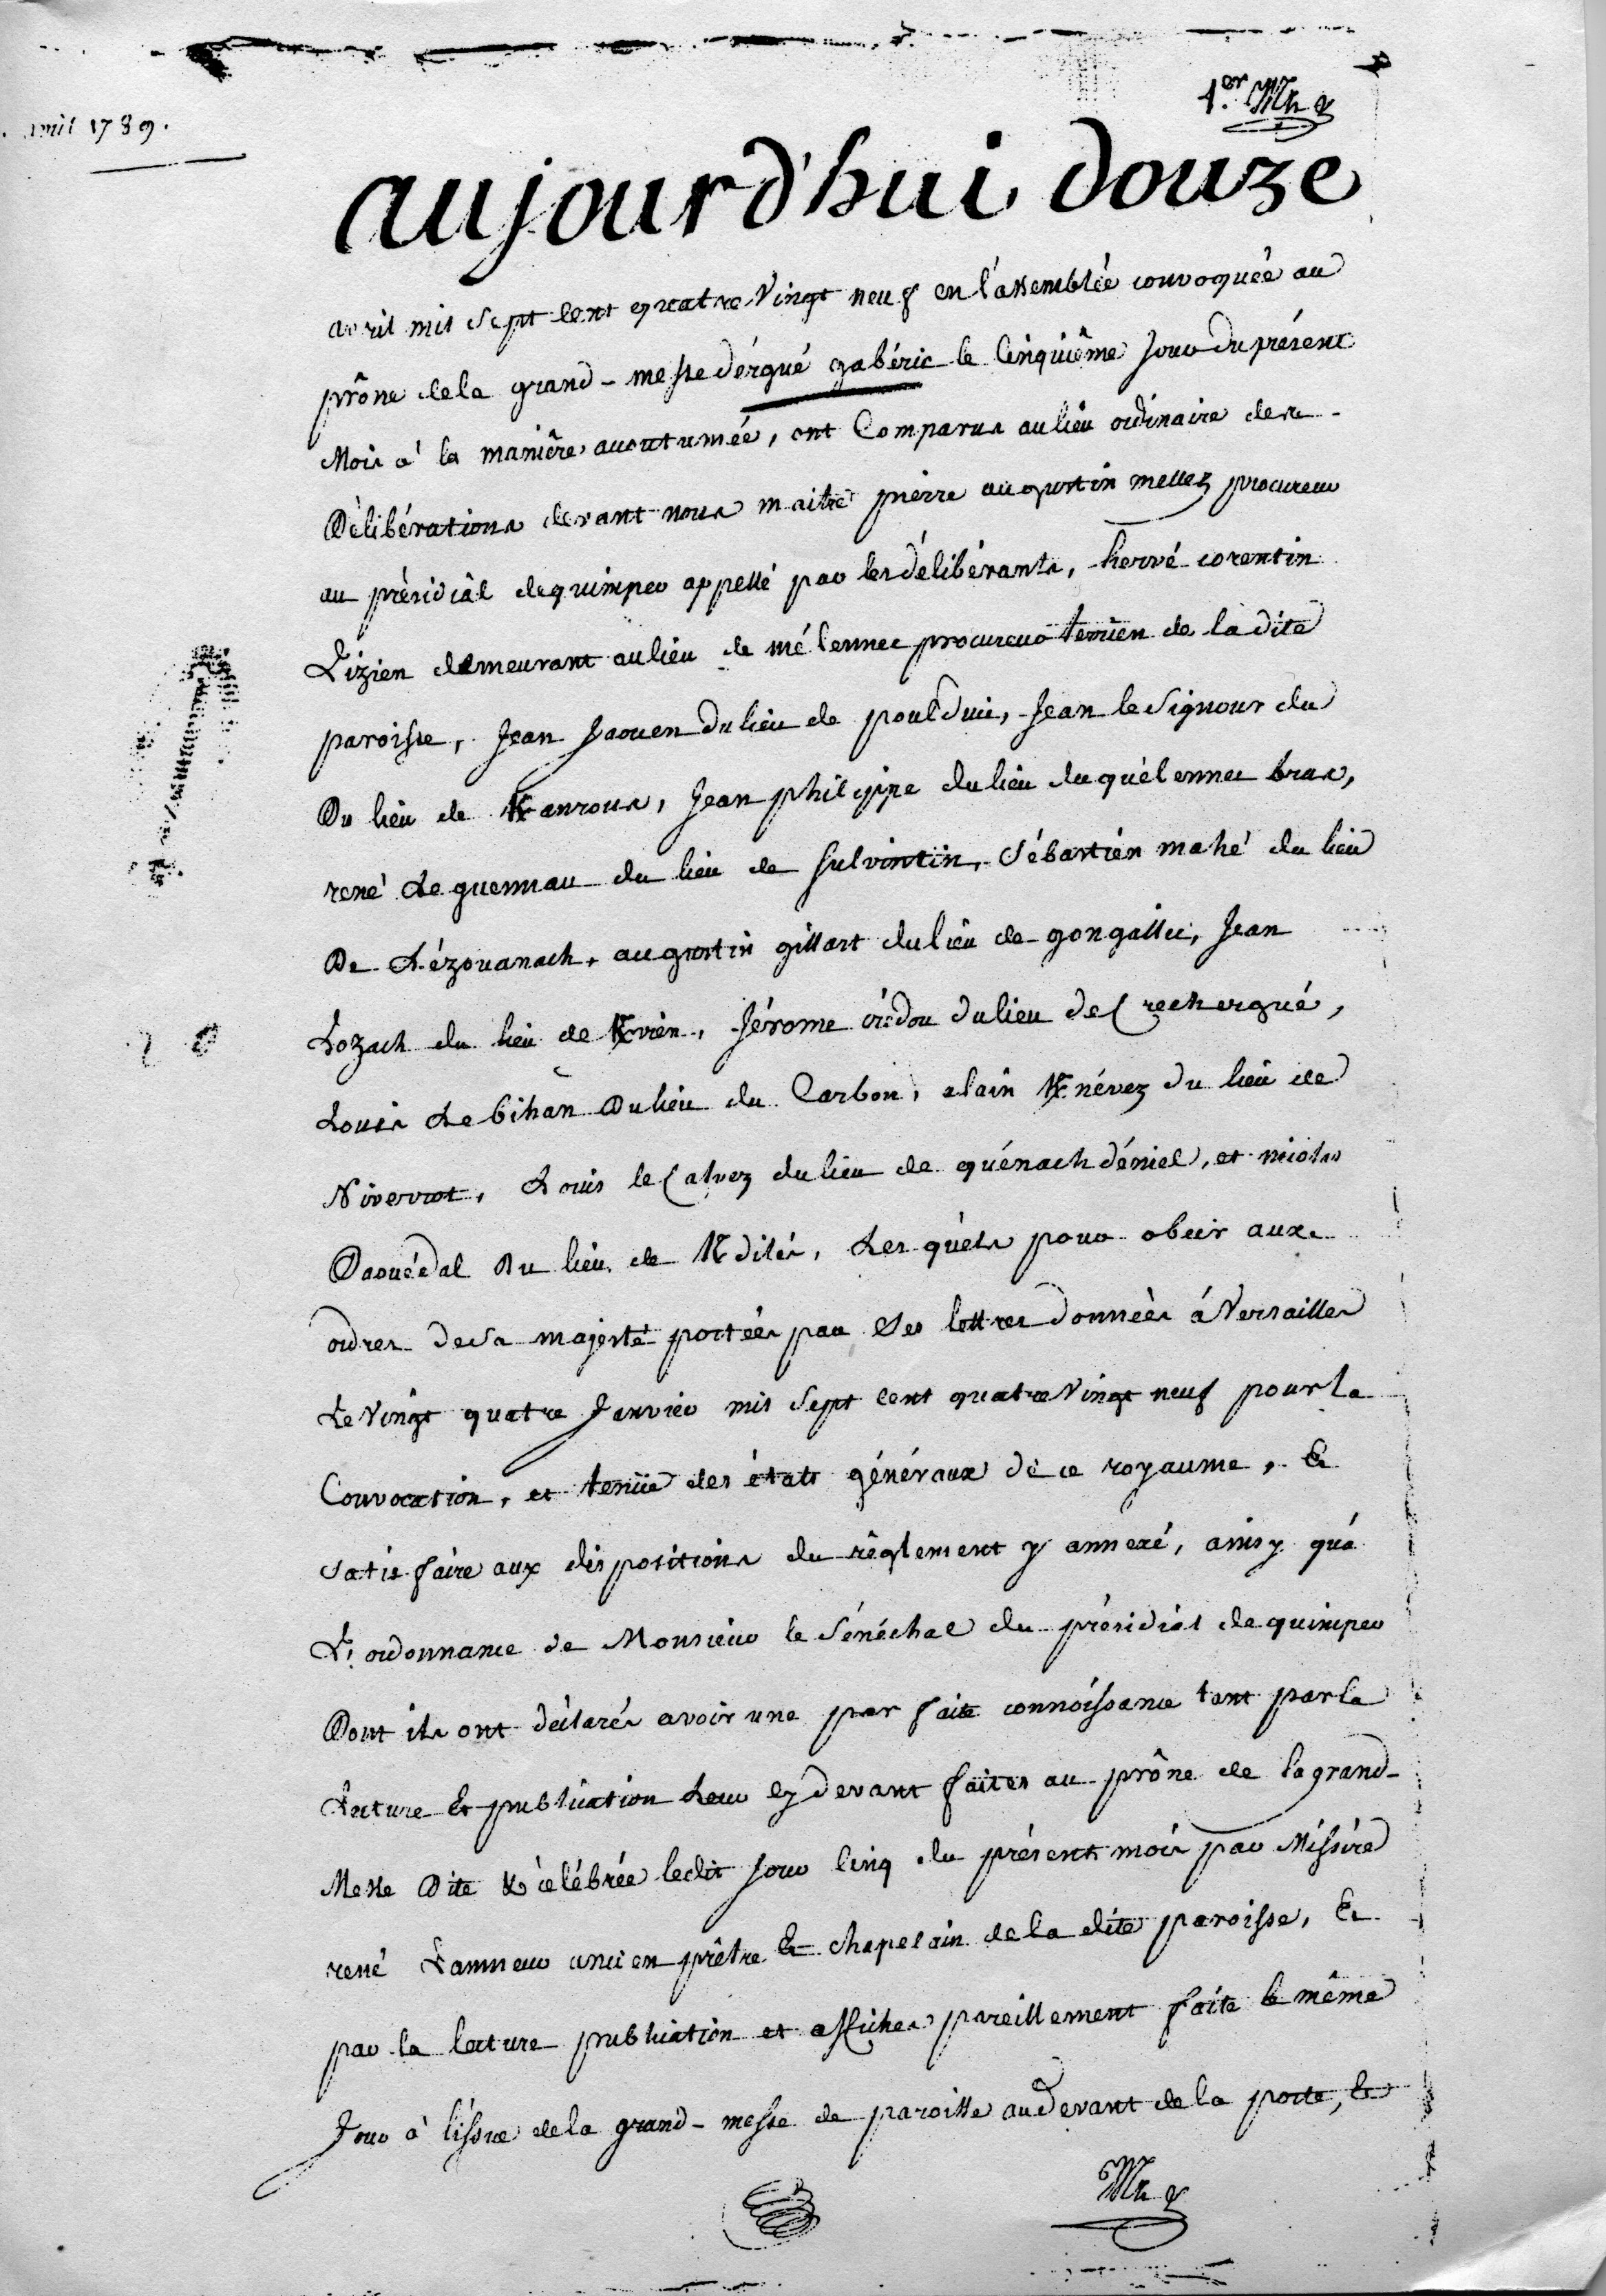 1.er
avril 1789.
aujourd'hui douze
avril mil sept cent quatre vingt neuf en l'assemblée convoquée au
prône de la grand-messe d'érgué gabéric le cinquiême jour du présent
Mois à la manière accoutumée, ont Comparus au lieu ordinaire des
Délibérations devant nous maitre pierre augustin mellez procureur
au présidial de quimper appellé par les délibérants, hervé corentin
Lizien demeurant au lieu de mélennec procureur terrien de la dite
paroisse, Jean Jaouen du lieu de poulduic, Jean le Signour du
Du lieu de Kanrous, Jean philippe du lieu du quélennec bras,
rené Le guennau du lieu de sulvintin, Sébastien mahé du lieu
De Lézouanach, augustin gillart du lieu de gongallic, Jean
Lozach du lieu de Kvrien, Jérome crédou du lieu de Crechergué,
Louis Le bihan Du lieu du Carbon, alain Knévez du lieu de
Niverrot, Louis le Calvez du lieu de quénach déniel, et nicolas
Daouédal Du lieu de Kdilés, Les quels pour obeir aux
ordres de sa majesté portées par ses lettres données à Versailles
Le vingt quatre Janvier mil sept cent quatre vingt neuf pour la
Convocation, et tenüe des états généraux de ce royaume, &
satisfaire aux dispositions du règlement y annexé, ainsy qu'à
L'ordonnance de Monsieur le sénéchal du présidial de quimper
Dont ils ont déclarés avoir une parfaite connoissance tant par la
Lecture & publication Leur cy devant faites au prône de la grand-
Messe Dite & célébrée ledit jour cinq du présent mois par Missire
rené Lanneur ancien prêtre & chapelain de la dite paroisse, &
par la lecture publication et affiches pareillement faite le même
Jour à l'issue de la grand-messe de paroisse au devant de la porte, &